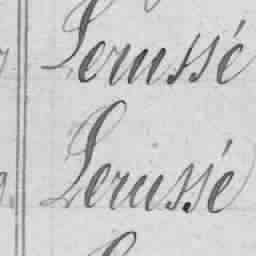 Lerussé
Lerussé